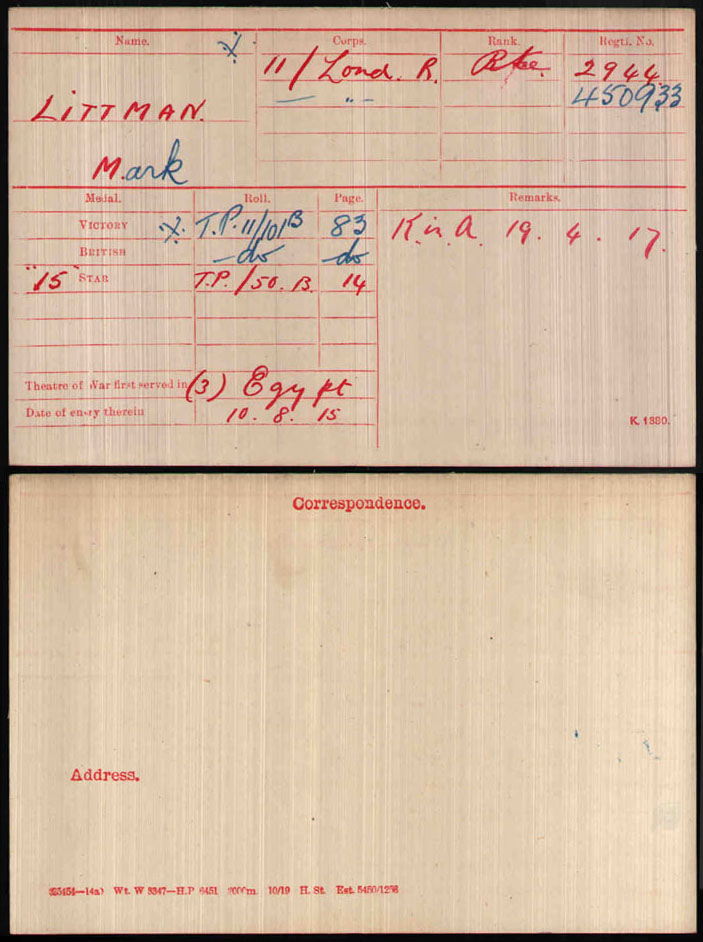 Name. Corps. Rank. Regtl. No.
11/Lond. R. Pte. 2944
— " — 450933
LITTMAN.
Mark
Medal. Roll. Page. Remarks.
VICTORY T.P. 11/101B 83 K. in. A. 19. 4. 17.
BRITISH —do— —do—
"15" STAR T.P./50. B. 14
Theatre of War first served in (3) Egypt
Date of entry therein 10. 8. 15
K. 1380.
Correspondence.
Address.
Wt. W 3347—H.P 6451 10/19 H. St. Est. 5450/1256